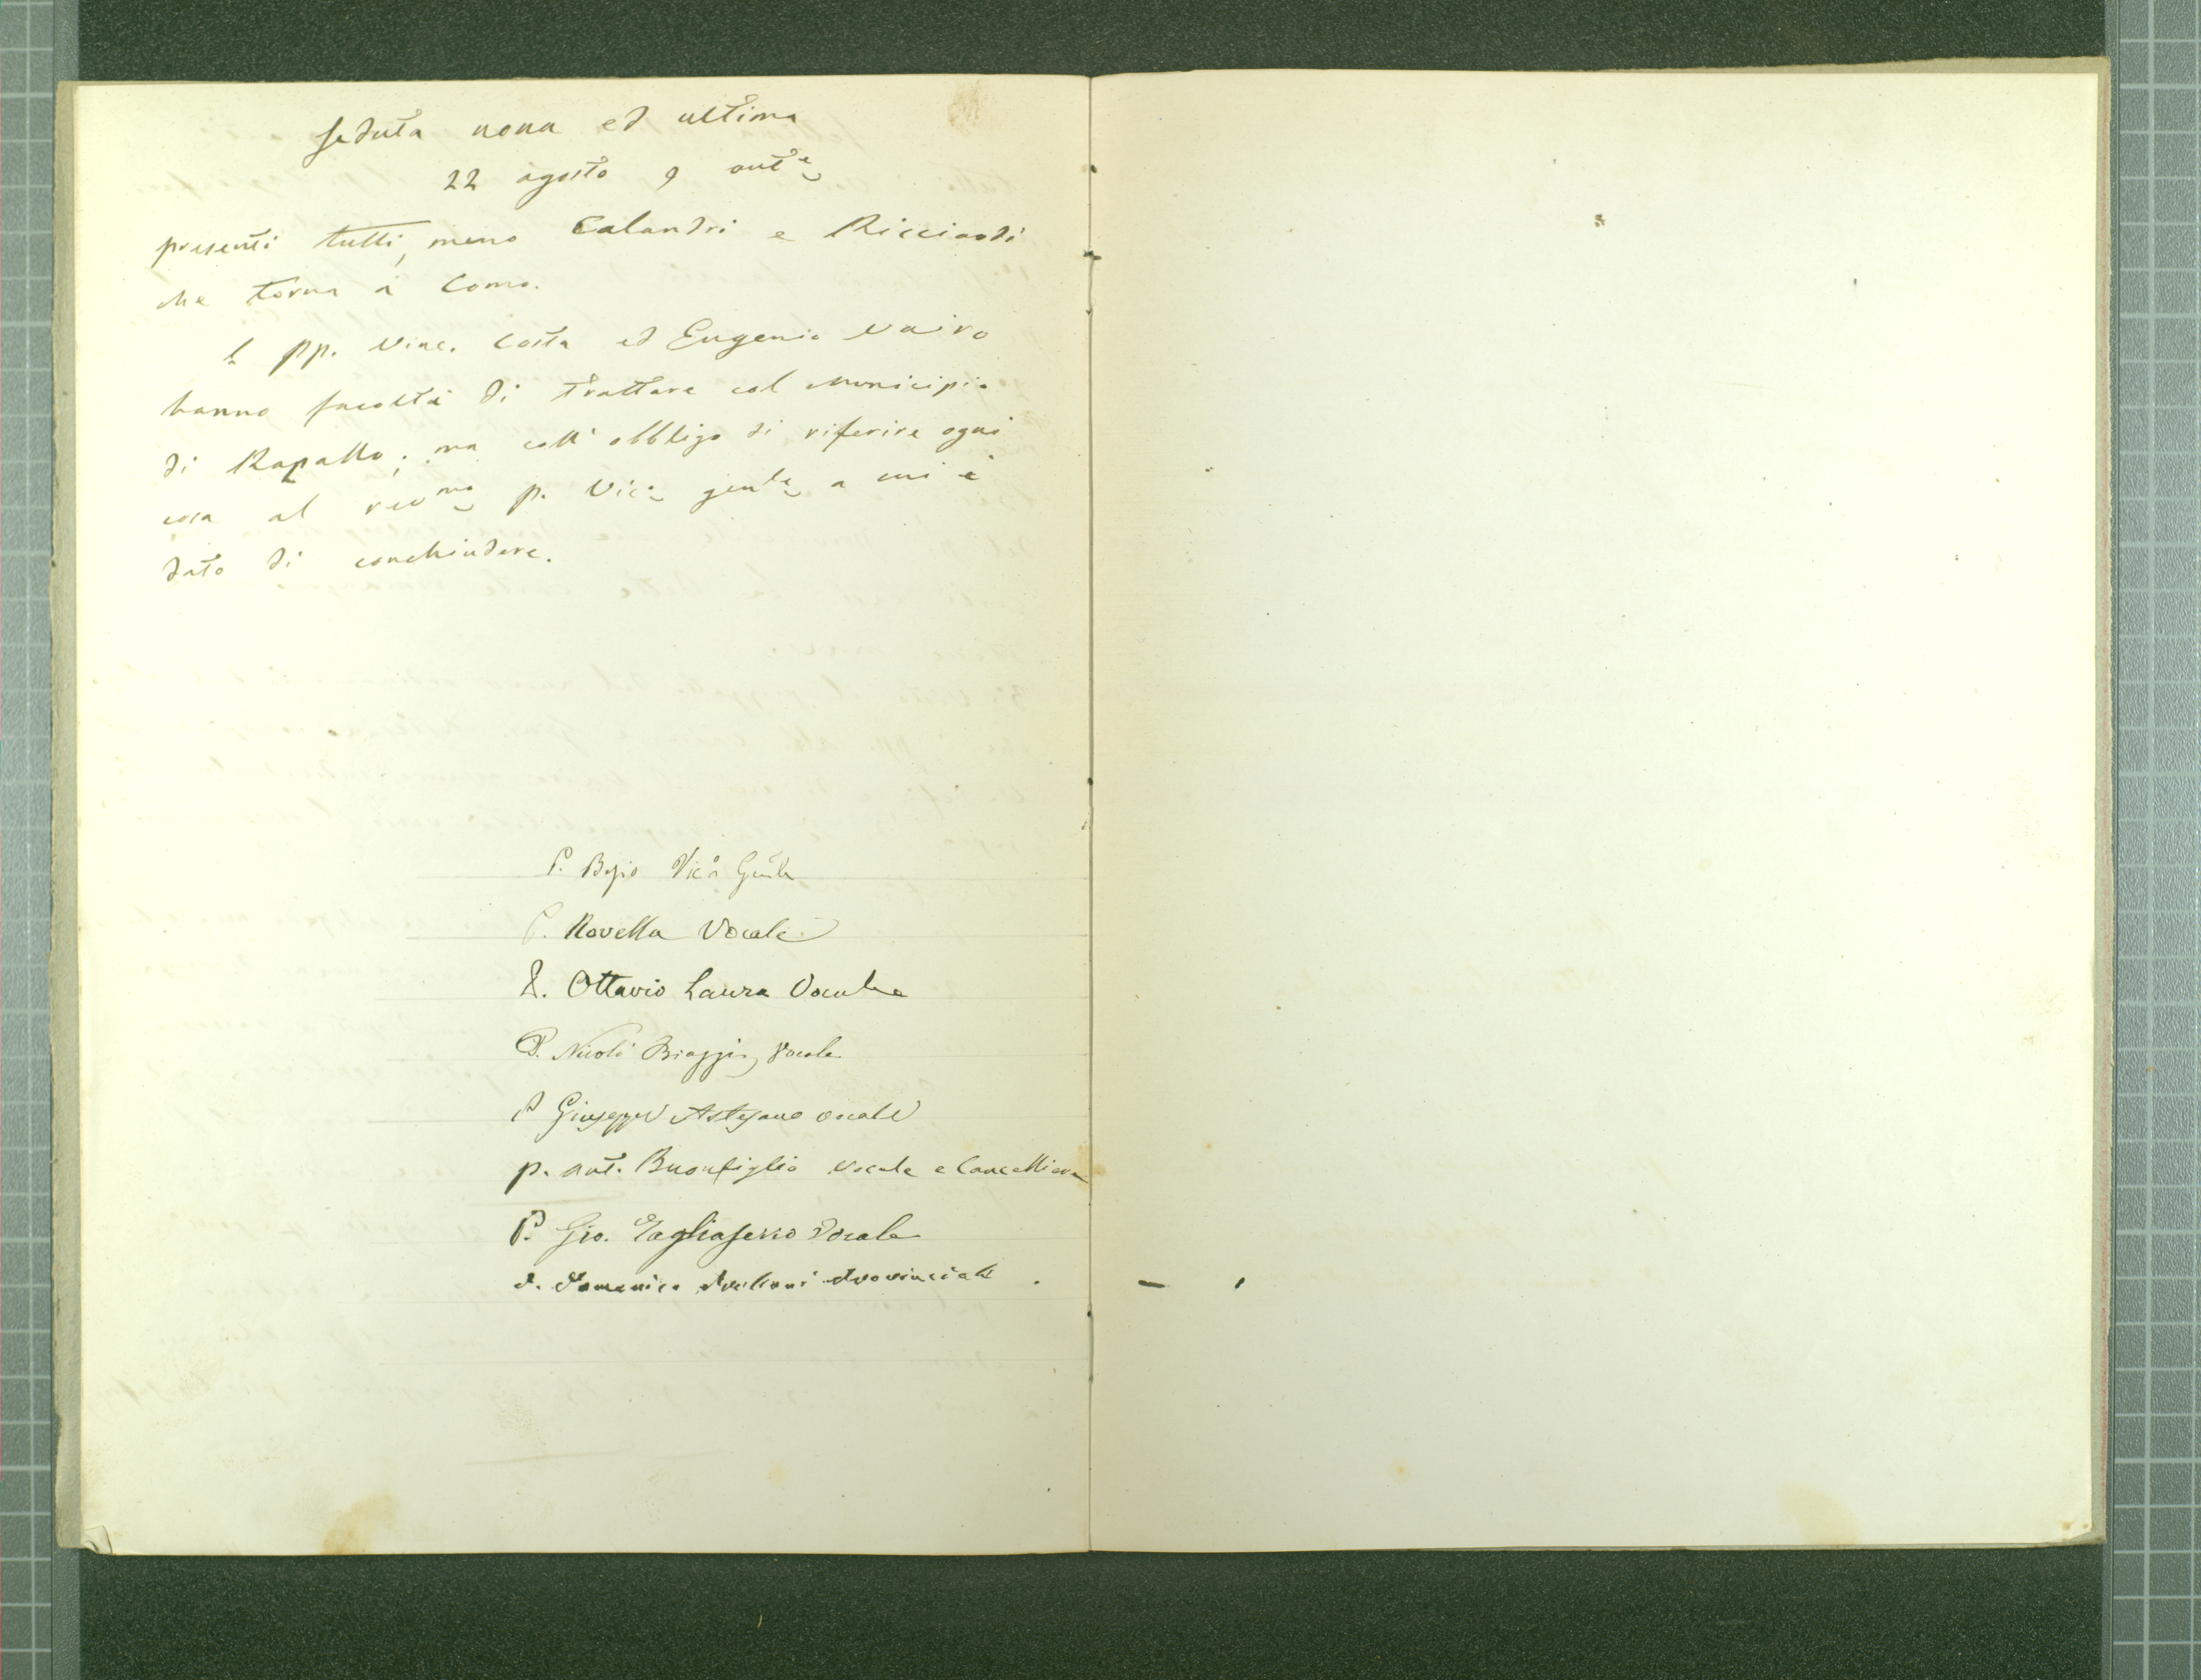 seduta nona ed ultima
22 agosto 9 ante
presenti tutti, meno Calandri e Ricciardi
che torna a Como.
I pp. Vinc. Costa ed Eugenio Vairo
hanno facoltà di trattare col Municipio
di Rapallo; ma coll'obbligo di riferire ogni
cosa al revmo p. Vico genle a cui è
dato di conchiudere.
P. Besio Vico Genle
P. Rovella Vocale
P. Ottavio Laura Vocale
P. Nicolò Biaggi, Vocale
P Giuseppe Astegano vocale
p. ant. Buonfiglio vocale e Cancelliere
P. Gio. Tagliaferro Vocale
P. Domenico Provinciale